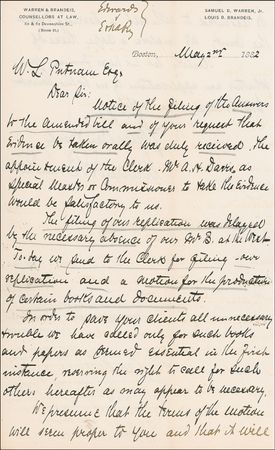 WARREN & BRANDEIS,
COUNSELLORS AT LAW,
SAMUEL D. WARREN, Jr
LOUIS D. BRANDEIS.
Edwards
v
Boston, May 2nd 1882
W. L. Putnam Esq.
Dear Sir:
Notice of the filing of the Answers
to the amended bill and of your request that
Evidence be taken orally was duly received. The
appointment of the Clerk Mr A. H. Davis as
Special Master or Commissioner to take the Evidence
would be satisfactory to us.
The filing of our replication was delayed
by the necessary absence of our Mr B. at the West
To-day we send to the Clerk for filing our
replication and a motion for the production
of certain books and documents.
In order to save your clients all unnecessary
trouble we have asked only for such books
and papers as seemed essential in the first
instance, reserving the right to call for such
others hereafter as may appear to be necessary.
We presume that the terms of the motion
will seem proper to you and that it will